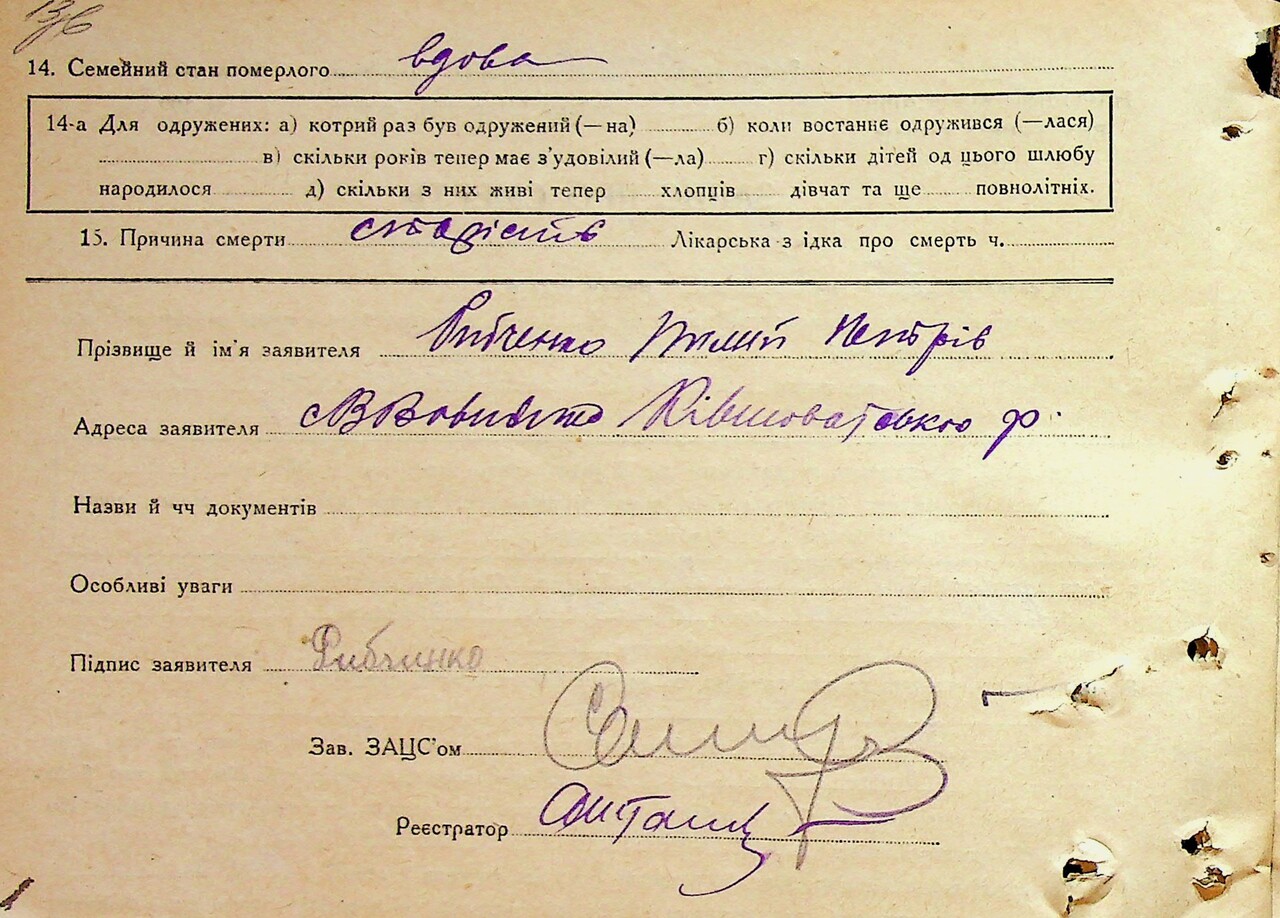 14. Семейний стан померлого вдова
14-а Для одружених: а) котрий раз був одружений (—на) б) коли востаннє одружився (—лася)
в) скільки років тепер має з’удовілий (—ла) г) скільки дітей од цього шлюбу
народилося д) скільки з них живі тепер хлопців дівчат та ще повнолітніх.
15. Причина смерти старість Лікарська з ідка про смерть ч.
Прізвище й ім’я заявителя Рибченко Петрів
Адреса заявителя Ківшоватського р.
Назви й чч документів
Особливі уваги
Підпис заявителя Рибчинко
Зав. ЗАЦС’ом
Реєстратор